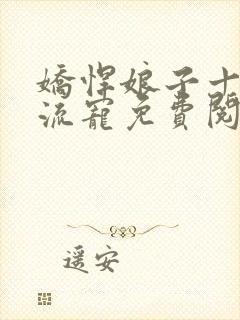 嬌悍娘子十
流寵免費閱
遥安